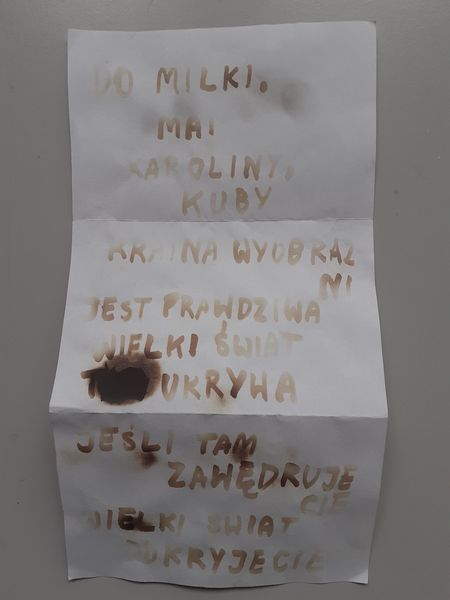 DO MILKI,
MAI
KAROLINY,
KUBY
KRAINA WYOBRAŹ
NI
JEST PRAWDZIWA
WIELKI ŚWIAT
UKRYWA
JEŚLI TAM
ZAWĘDRUJE
CIE
WIELKI ŚWIAT
ODKRYJECIE